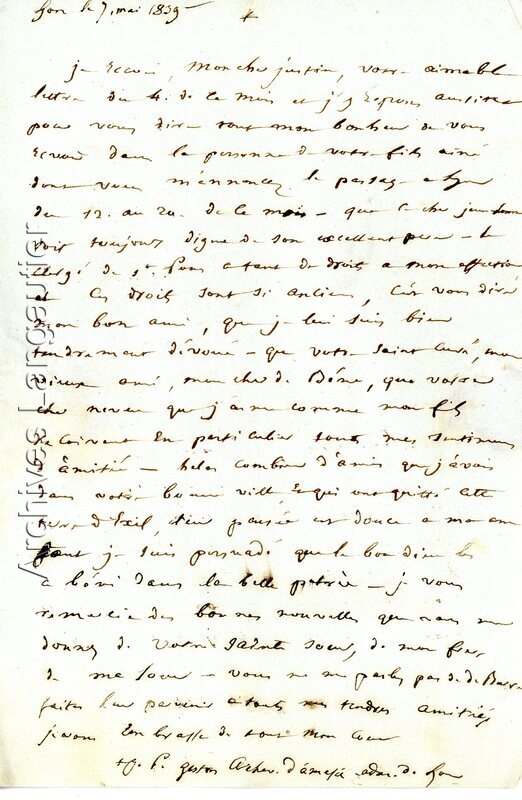 Lyon le 7. mai 1839
+
je reçois, mon cher justin, votre aimable
lettre du 4. de ce mois et j'y réponds aussitot
pour vous dire tout mon bonheur de vous
revoir dans la personne de votre fils ainé
dont vous m'annoncez le passage a Lyon
du 12. au 20. de ce mois - que ce cher jeune homme
soit toujours digne de son excellent pere - le
clergé de st. Pons a tant de droits a mon affection
et ces droits sont si anciens, c'est vous dire
mon bon ami, que je lui suis bien
tendrement dévoué - que votre saint curé, mon
vieux ami, mon cher de Béne, que votre
cher neveu que j'aime comme mon fils
reçoivent en particulier tous mes sentimens
d'amitié - helas combien d'amis que j'avois
dans votre bonne ville, et qui ont quitté cette
terre d'Exil, pensée est douce a mon
je suis persuadé que le bon dieu les
a béni dans la belle patrie - je vous
remercie des bonnes nouvelles que vous me
donnez de votre sainte soeur, de mon frere
de ma soeur - vous ne me parlez pas de
faites leur parvenir a touts mes tendres amitiés
je vous embrasse de tout mon coeur
+ j. P. gaston Archev. d'amasie adm. de Lyon
Archives J-Langeutier